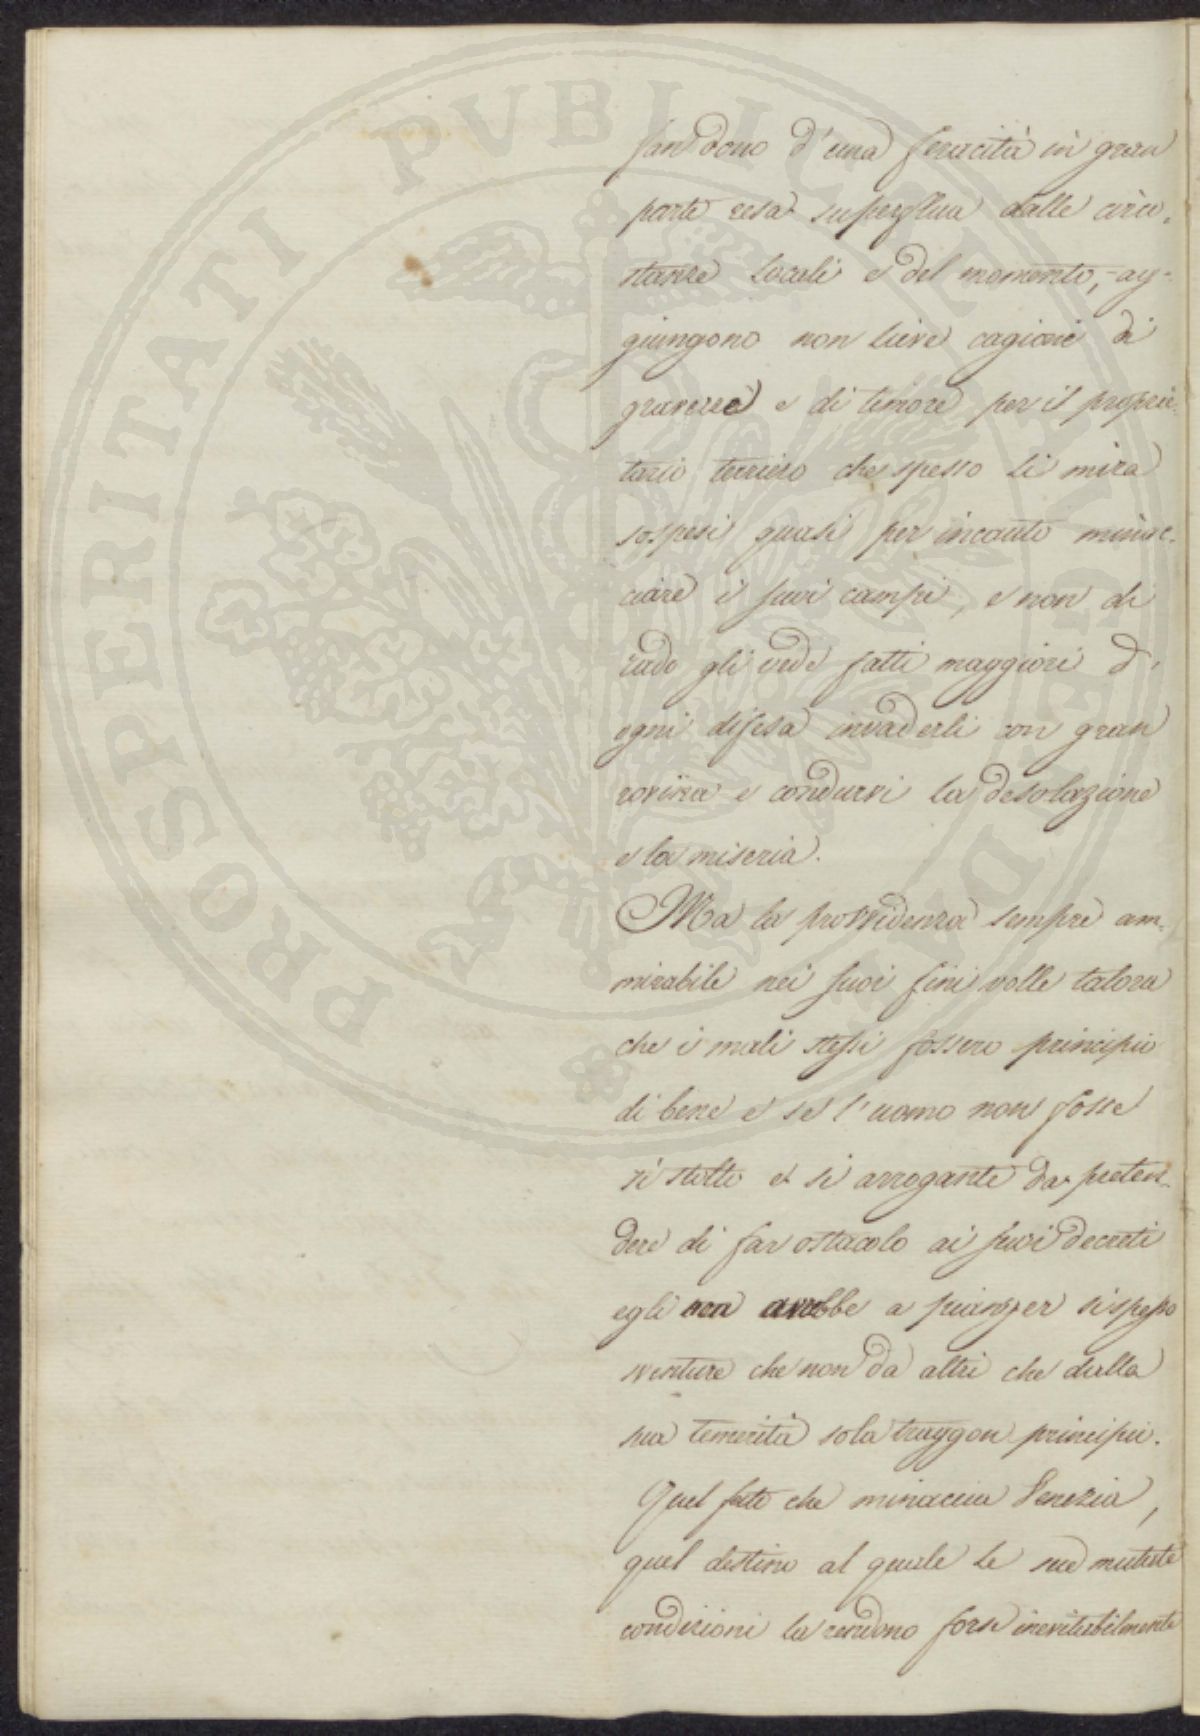 fan dono d'una feracità in gran
parte resa superflua dalle circo-
stanze locali e del momento, ag-
giungono non lieve cagione di
gravezze e di timore per il proprie-
tario terriero che spesso li mira
sospesi quasi per incanto minac-
ciare i suoi campi, e non di
rado gli vede fatti maggiori d'
ogni difesa invaderli con gran
rovina e condurvi la desolazione
e la miseria.
Ma la provvidenza sempre am-
mirabile nei suoi fini volle talora
che i mali stessi fossero principio
di bene e se l'uomo non fosse
sì stolto e sì arrogante da preten-
dere di far ostacolo ai suoi decreti
egli non avrebbe a pianger sì spesso
sventure che non da altri che dalla
sua temerità sola traggon principii.
Quel fato che minaccia Venezia,
quel destino al quale le sue mutate
condizioni la rendono forse inevitabilmente
PROSPERITATI PVBLICAE AVGENDAE